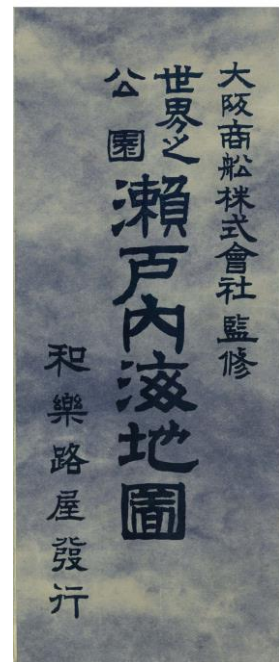 大阪商船株式會社 監修
世界之公園
瀨戸内海地圖
和樂路屋發行